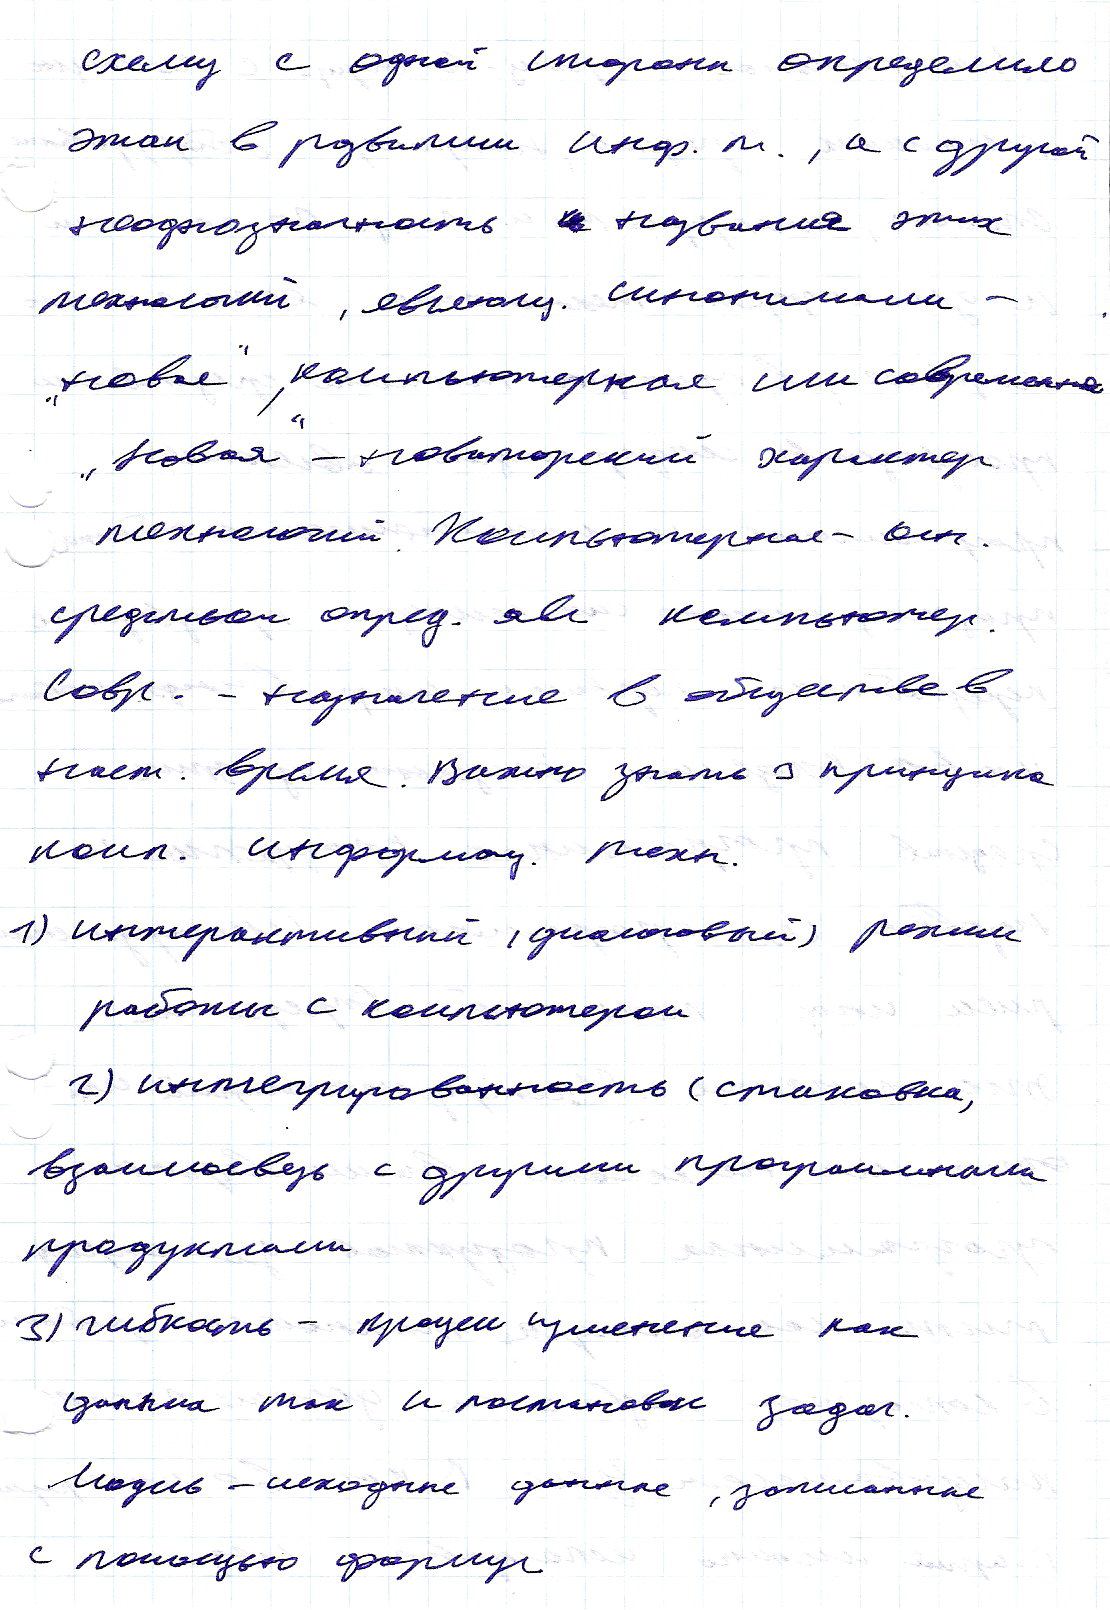 схему с одной стороны определило
этап в развитии инф. т., а с другой
неоднозначность названия этих
технологий, являющ. синонимами –
„новые“, компьютерная или современная
„Новая“ – новаторский характер
технологий. Компьютерные – осн.
средством опред. явл компьютер.
Совр. – назначение в обществе в
наст. время. Важно знать 3 принципа
комп. информац. техн.
1) интерактивный (диалоговый) режим
работы с компьютером
2) интегрированность (стыковка,
взаимосвязь с другими программными
продуктами
3) гибкость – процесс изменение как
данных так и постановок задач.
Модель – исходные данные, записанные
с помощью формул